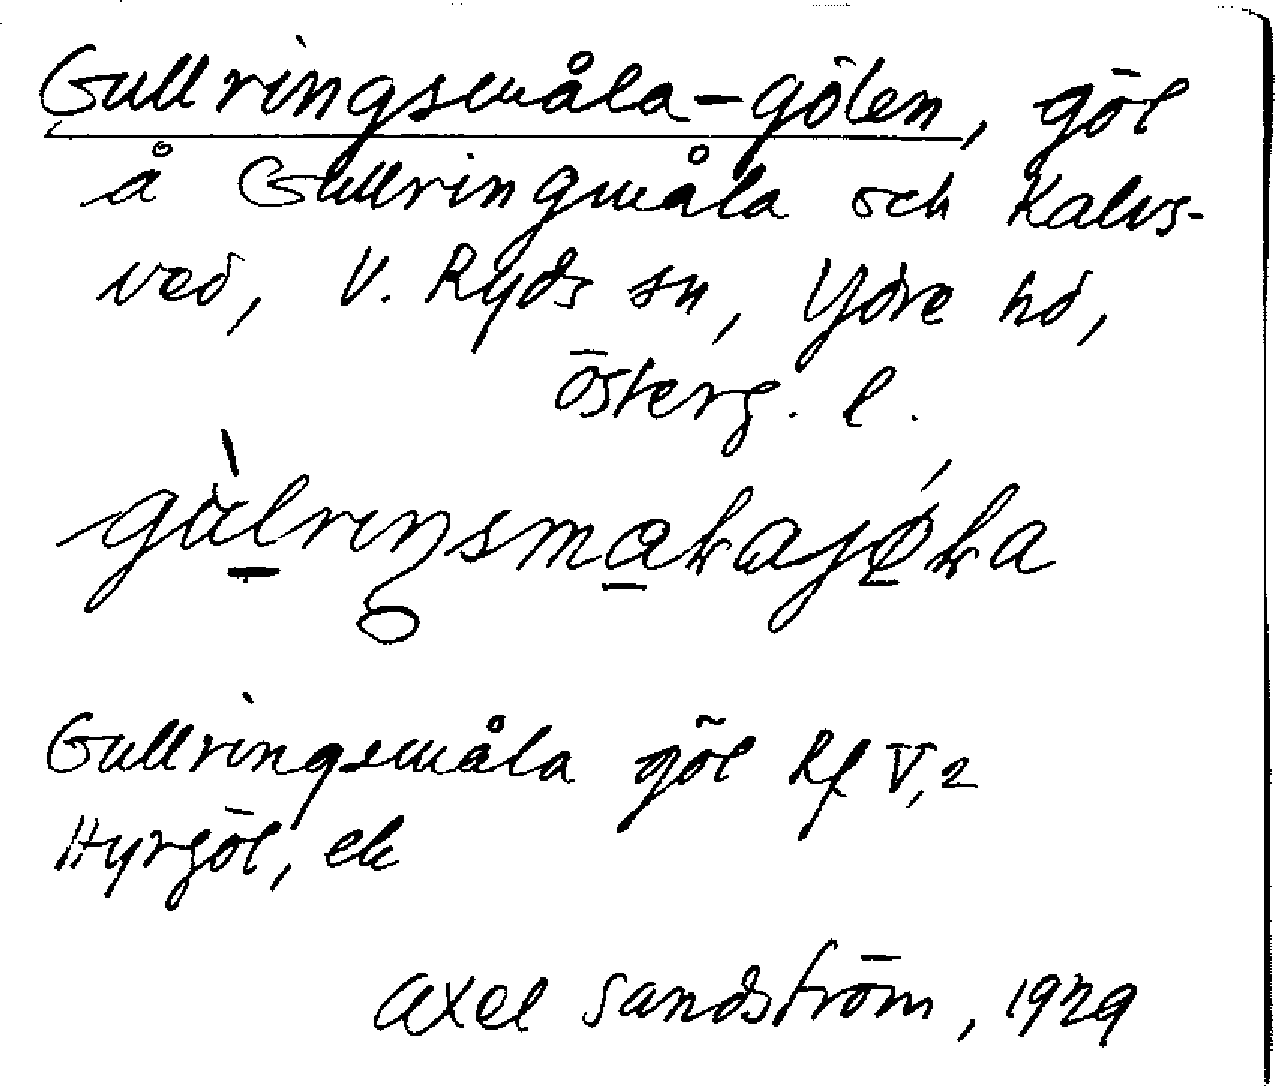 Gullringsmåla-gölen, göl
å Gullringmåla och Kalvs-
ved, V. Ryds sn, Ydre hd,
Österg. l.
Gullringsmåla göl Rf V,2
Hyrgöl, ek
Axel Sandström, 1929